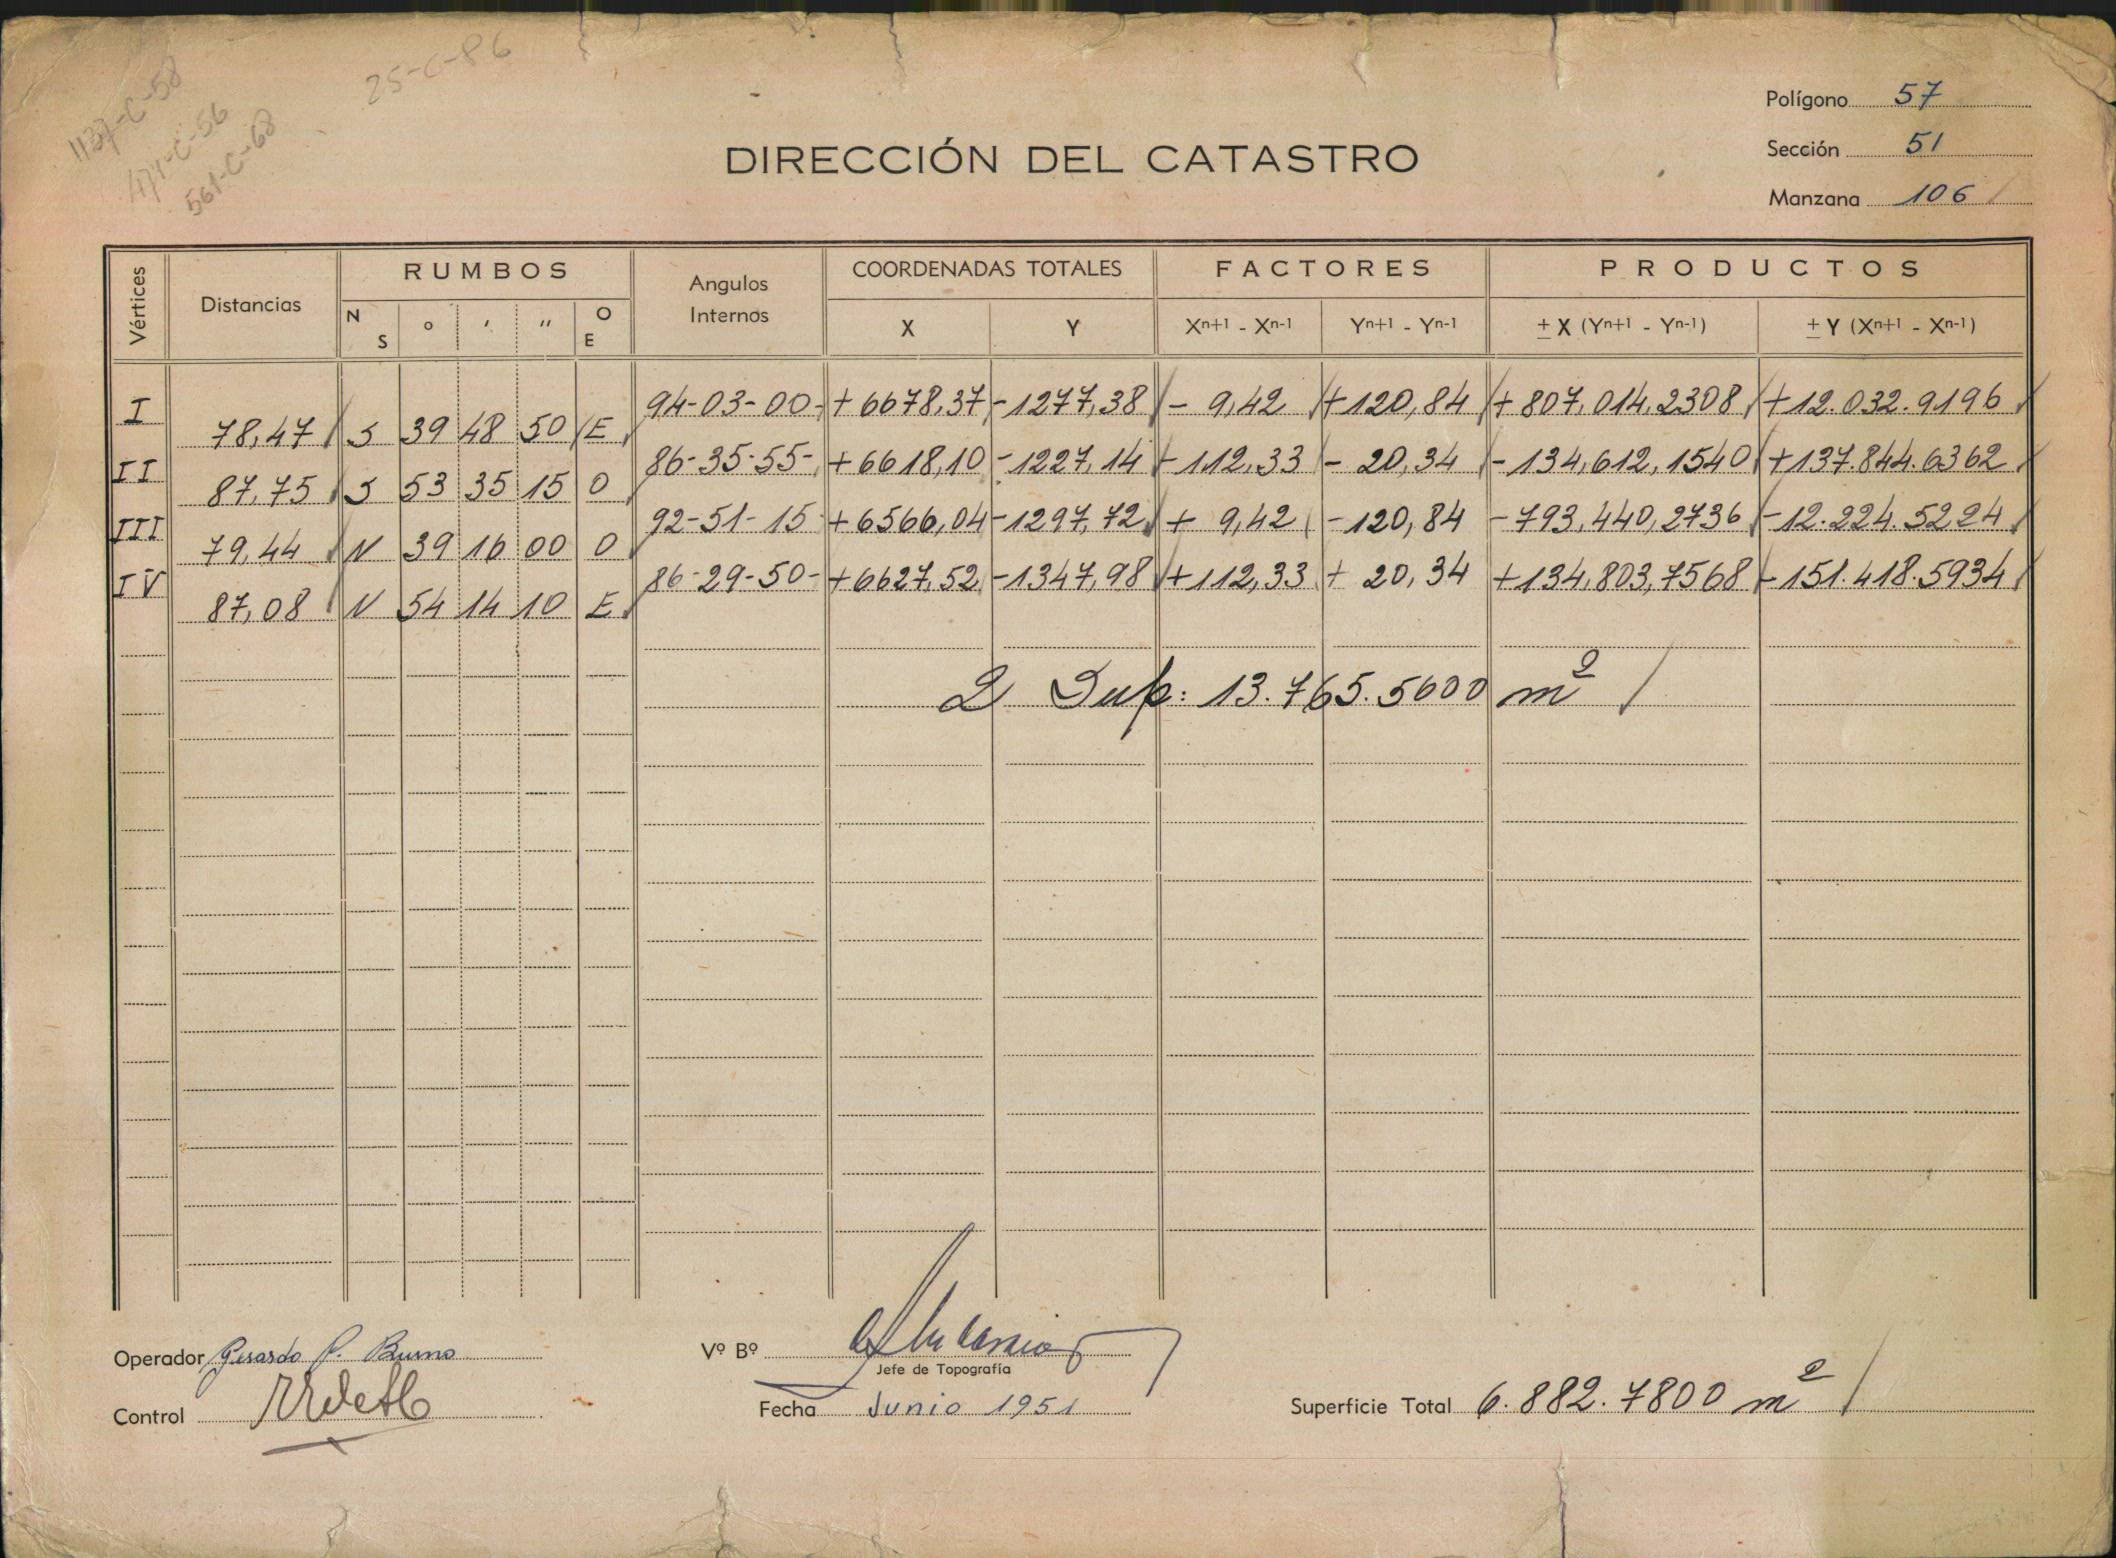 25-C-86
1137-C-58
471-C-56
561-C-68
Polígono 57
DIRECCIÓN DEL CATASTRO
Sección 51
Manzana 106
Vértices Distancias RUMBOS Angulos Internos COORDENADAS TOTALES FACTORES PRODUCTOS
N S ° ' '' O E X Y Xn+1 - Xn-1 Yn+1 - Yn-1 ± X (Yn+1 - Yn-1) ± Y (Xn+1 - Xn-1)
I 94-03-00- +6678,37 -1277,38 - 9,42 +120,84 +807,014,2308 +12.032.9196
78,47 S 39 48 50 E
II 86-35-55- +6618,10 -1227,14 -112,33 - 20,34 -134,612,1540 +137.844.6362
87,75 S 53 35 15 O
III 92-51-15 +6566,04 -1297,72 + 9,42 -120,84 -793,440,2736 -12.224.5224
79,44 N 39 16 00 O
IV 86-29-50- +6627,52 -1347,98 +112,33 + 20,34 +134,803,7568 -151.418.5934
87,08 N 54 14 10 E
2 Sup: 13.765.5600 m²
Operador Gerardo P. Bruno
Vº Bº
Jefe de Topografía
Control
Fecha Junio 1951
Superficie Total 6.882.7800 m²